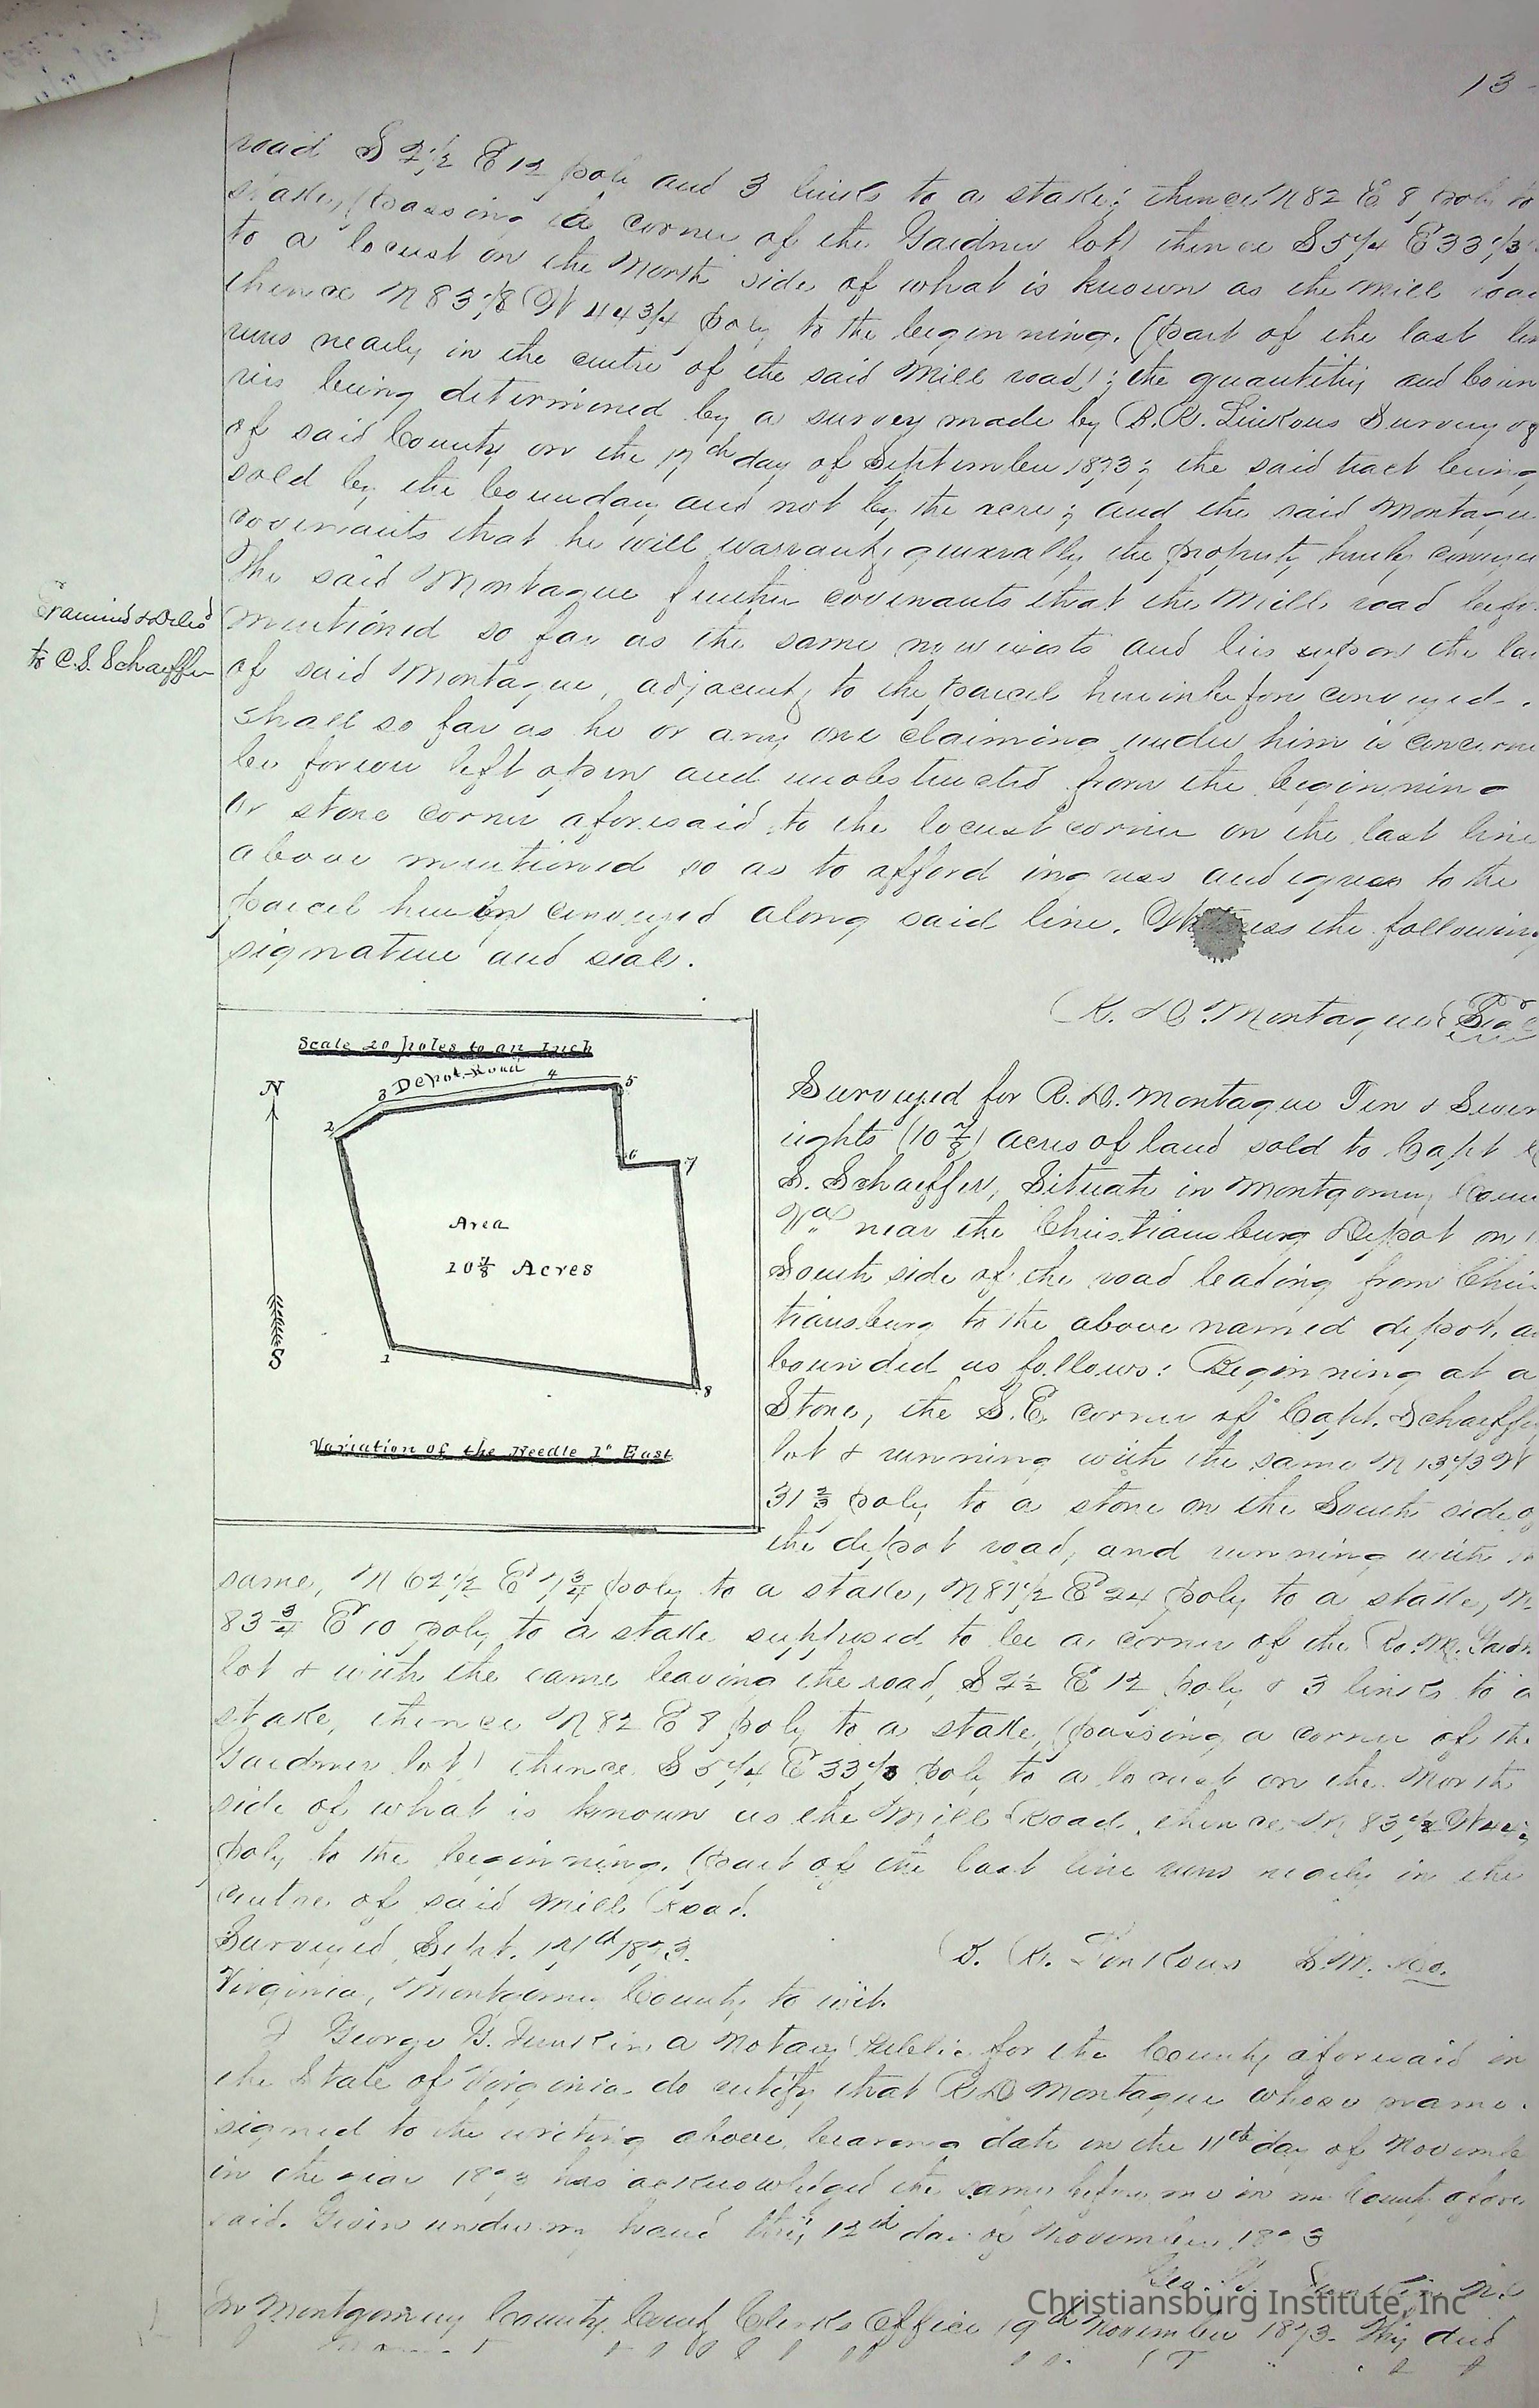 13
road S 2 1/2 E 12 poles and 3 links to a stake; thence N 82 E 8 poles to
stake, (passing a corner of the Gardner lot) thence S 5 1/4 E 33 1/3
to a locust on the North side of what is known as the Mill road
thence N 83 1/2 W 44 3/4 poles to the beginning. (part of the last
runs nearly in the centre of the said Mill road); the quantity and boun
ries being determined by a survey made by Linkous Survey
of said County on the 17th day of September 1873; the said tract being
sold by the boundary and not by the acre; and the said Montague
covenants that he will warranty generally the property hereby conveyed
The said Montague further covenants that the Mill road befo
mentioned so far as the same now exists and lies upon the la
of said Montague, adjacent to the parcel hereinbefore conveyed
shall so far as he or any one claiming under him is concerne
be forever left open and unobstructed from the beginning
or stone corner aforesaid, to the locust corner on the last line
above mentioned so as to afford ingress and egress to the
parcel herein conveyed along said line. Witness the following
signature and seal.
Examined & Deld
to C.S. Schaeffer
R. D. Montague Seal
Scale 20 poles to an Inch
Depot Road
N
S
1
2
3
4
5
6
7
8
Area
10 7/8 Acres
Variation of the Needle 1° East
Surveyed for R. D. Montague Ten & Seven
eights (10 7/8) acres of land sold to Capt
S. Schaeffer, Situate in Montgomery Coun
Va near the Christiansburg Depot on
South side of the road leading from Chris
tiansburg to the above named depot, a
bounded as follows: Beginning at a
Stone, the S.E. corner of Capt. Schaeffer
lot & running with the same N 13 1/3 W
31 2/3 poles to a stone on the South side of
the depot road, and running with
same, N 62 1/2 E 7 3/4 poles to a stake, N 81 1/2 E 24 poles to a stake, N
83 3/4 E 10 poles to a stake supposed to be a corner of the Ro. M. Gardn
lot & with the same leaving the road, S 2 1/2 E 12 poles & 3 links to a
stake, thence N 82 E 8 poles to a stake, (passing a corner of the
Gardner lot) thence S 5 1/4 E 33 1/3 poles to a locust on the North
side of what is known as the Mill Road, thence N 83 1/2 W
poles to the beginning. (part of the last line runs nearly in the
centre of said Mill Road.
Surveyed, Sept. 17th 1873.
Linkous S.M. Co.
Virginia, Montgomery County to wit.
I George G. Junkin a Notary Public for the County aforesaid in
the State of Virginia do certify that R D Montague whose name
signed to the writing above, bearing date on the 11th day of Novembe
in the year 1873 has acknowledged the same before me in my County afore
said. Given under my hand this 12th day of November 1873
Geo. G. Junkin N.P.
In Montgomery County Court Clerks Office 19th November 1873. This deed
Christiansburg Institute, Inc